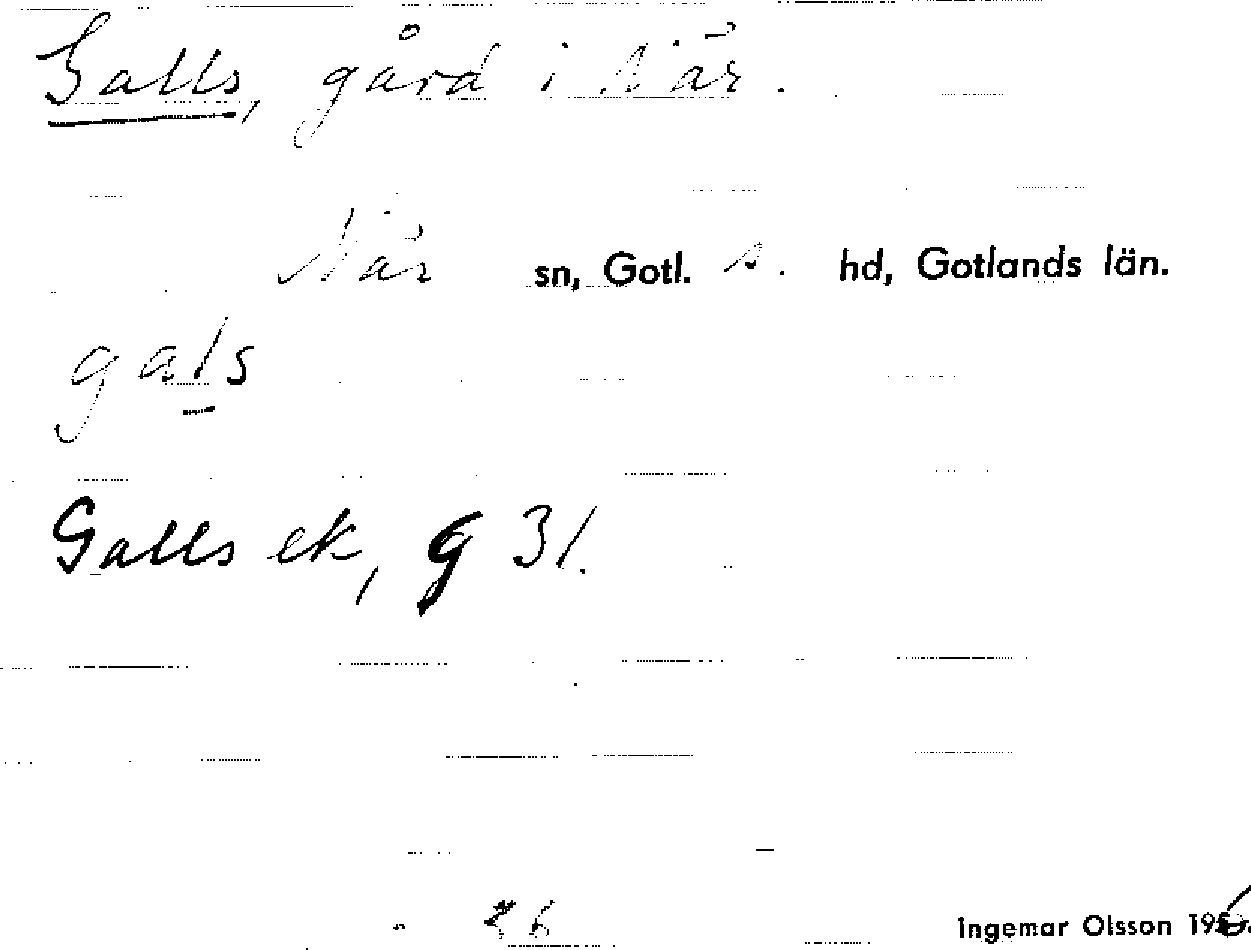 Galls, gård i När.
När sn, Gotl. s. hd, Gotlands län.
gals
Galls ek, g 31.
Ingemar Olsson 195